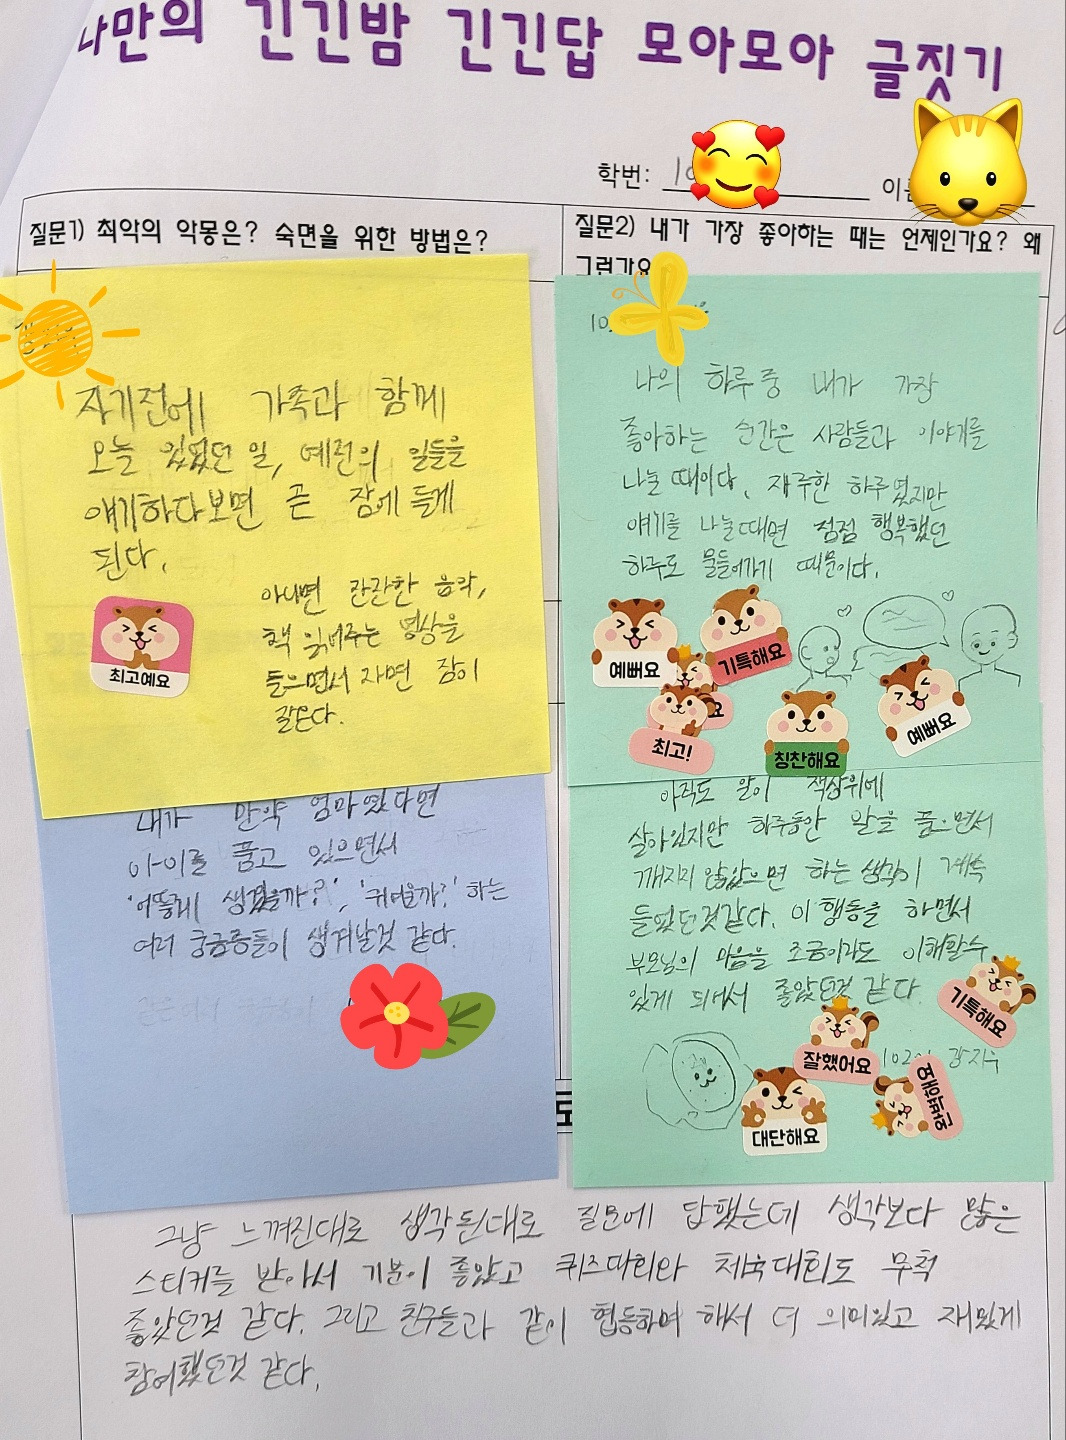 나만의 긴긴밤 긴긴답 모아모아 글짓기
학번: 10
질문1) 최악의 악몽은? 숙면을 위한 방법은?
질문2) 내가 가장 좋아하는 때는 언제인가요? 왜
그런가요
자기전에 가족과 함께
오늘 있었던 일, 예전의 일들을
얘기하다보면 곧 잠에 들게
된다.
아니면 잔잔한 음악,
책 읽어주는 영상을
들으면서 자면 잠이
잘온다.
최고예요
10
나의 하루 중 내가 가장
좋아하는 순간은 사람들과 이야기를
나눌 때이다. 한 하루였지만
얘기를 나눌때면 점점 행복했던
하루로 물들어가기 때문이다.
예뻐요
기특해요
요
최고!
칭찬해요
예뻐요
내가 만약 엄마였다면
아이를 품고 있으면서
'어떻게 생겼을까?', '귀여울까?' 하는
여러 궁금증들이 생겨날것 같다.
아직도 알이 책상위에
살아있지만 하루동안 알을 품으면서
깨지지 않았으면 하는 생각이 계속
들었던것같다. 이 행동을 하면서
부모님의 마음을 조금이라도 이해할수
있게 되어서 좋았던것 같다.
기특해요
잘했어요
102
대단해요
그냥 느껴진대로 생각된대로 질문에 답했는데 생각보다 많은
스티커를 받아서 기분이 좋았고 퀴즈대회와 체육대회도 무척
좋았던것 같다. 그리고 친구들과 같이 협동하며 해서 더 의미있고 재밌게
참여했던것 같다.